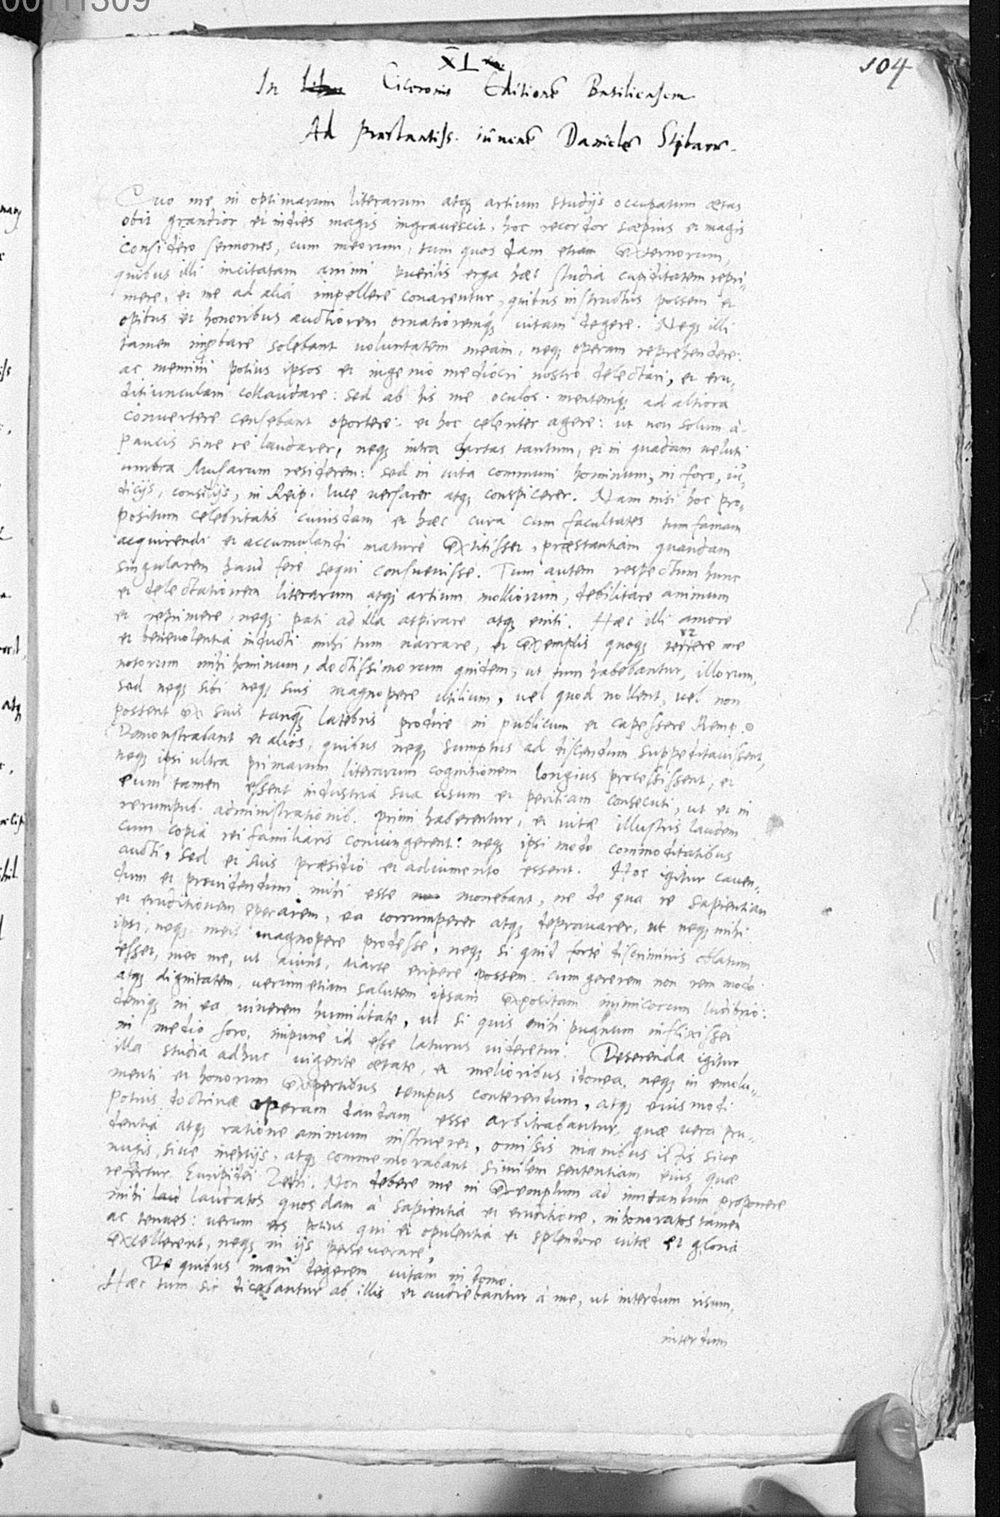 00111309
104
XL
In Ciceronis Editionē Basiliensem
Ad Praestantiss. iuvenē Danielē Stibarū.
Quo me in optimarum literarum atq; artium studijs occupatum aetas
obit grandior, et indies magis ingravescit, hoc recordor saepius et magis
considero sermones, cum meorum, tum quosdam etiam externorum,
quibus illi incitatam animi puerilis erga haec studia cupiditatem repri-
mere, et me ad alia impellere conarentur, quibus instructus possem et
opibus et honoribus auctiorem ornatioremq; vitam degere. Neq; illi
tamen improbare solebant voluntatem meam, neq; operam reprehendere:
ac memini potius ipsos et ingenio mediocri nostro delectari, et eru-
ditiunculam collaudare: sed ab his me oculos mentemq; ad altiora
convertere censebant oportere: et hoc celeriter agere: ut non solum à
paucis sine re laudarer, neq; intra chartas tantum, et in quadam veluti
umbra Musarum residerem: sed in vita communi hominum, in foro, iu-
dicijs, consilijs, in Reip: luce versarer atq; conspicerer. Nam nisi hoc pro-
positum celebritatis cuiusdam et haec cura cum facultates tum famam
acquirendi et accumulandi maturè extitisset, praestantiam quandam
singularem haud fere sequi consuevisse. Tum autem respectum hunc
et delectationem literarum atq; artium molliorum, debilitare animum
et reprimere, neq; pati ad illa aspirare atq; eniti. Haec illi amore
et benevolentia inducti mihi tum narrare, et exemplis quoq; terrere me
notorum mihi hominum, doctissimorum quidem, ut tum habebantur, illorum,
sed neq; sibi neq; suis magnopere utilium, vel quod nollent, vel non
possent ex suis tanq; latebris prodire in publicum et capessere Remp.
Demonstrabant et alios, quibus neq; sumptus ad discendum suppeditavissent,
neq; ipsi ultra primarum literarum cognitionem longius processissent, et
eum tamen essent industria sua usum et peritiam consecuti, ut et in
rerumpub. administrationib. primi haberentur, et vitae illustris laudem
cum copia rei familiaris coniungerent: neq; ipsi modo commoditatibus
aucti, sed et suis praesidio et adiumento essent. Hoc igitur caven-
dum et providendum mihi esse monebant, ne de qua re sapientiam
et eruditionem sperarem, ea corrumperer atq; depravarer, ut neq; mihi
ipsi, neq; meis magnopere prodesse, neq; si quid fortè discriminis oblatum
esset, meo me, ut aiunt, marte eripere possem cum gererem non rem modo
atq; dignitatem, verumetiam salutem ipsam expositam inimicorum ludibrio:
deniq; in ea viverem humilitate, ut si quis mihi pugnum inflixisset
in medio foro, impune id esse laturus videretur. Deserenda igitur
illa studia adhuc vigente aetate, et melioribus idonea, neq; in emolu-
menti et honorum expertibus tempus conterendum, atq; eiusmodi
potius doctrinae operam dandam esse arbitrabantur, quae vera pru-
dentia atq; ratione animum instrueret, omissis inanibus istis sive
nugis, sive ineptijs, atq; commemorabant similem sententiam eius, quae
refertur Euripidei Zethi. Non debere me in exemplum ad imitandum proponere
mihi laudatos quosdam à sapientia et eruditione, inhonoratos tamen
ac tenues: verum eos potius qui et opulentia et splendore vitae et gloria
excellerent, neq; in ijs perseverare
De quibus inani degerem vitam in domo.
Haec tum sic dicebantur ab illis et audiebantur à me, ut interdum risum,
interdum